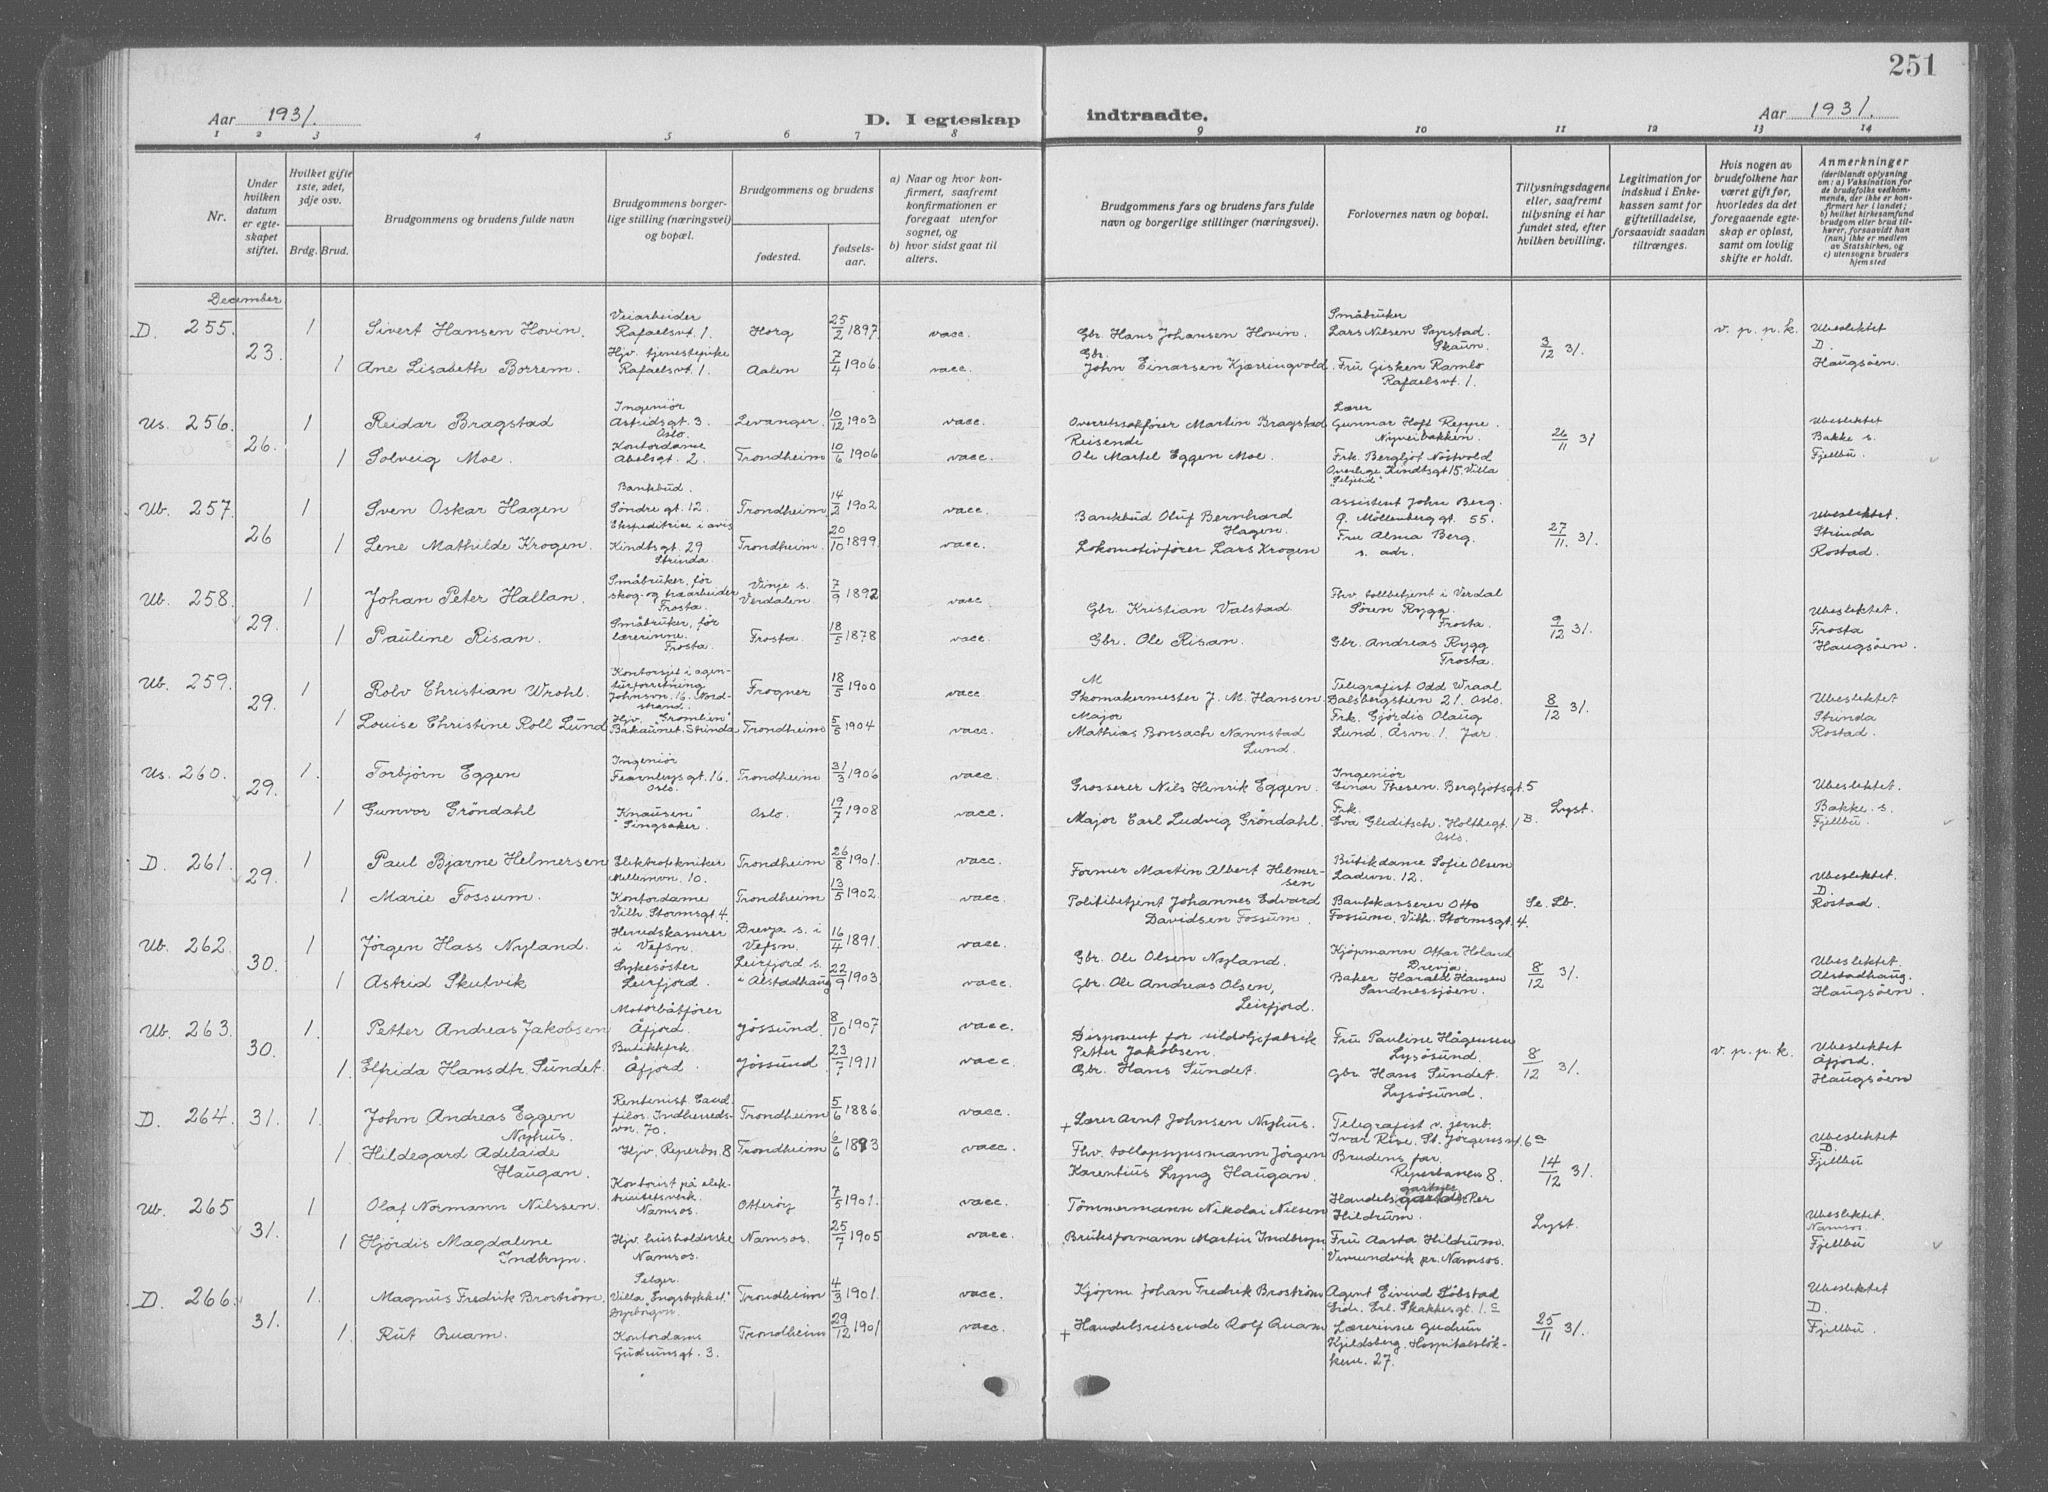 251
Aar 1931.
D. I egteskap indtraadte.
Aar 1931.
1 2 3 4 5 6 7 8 9 10 11 12 13 14
Nr.
Under hvilken datum er egteskapet stiftet.
Hvilket gifte 1ste, 2det, 3dje osv.
Brdg. Brud.
Brudgommens og brudens fulde navn
Brudgommens borgerlige stilling (næringsvei) og bopæl.
Brudgommens og brudens
fødested.
fødselsaar.
a) Naar og hvor konfirmert, saafremt konfirmationen er foregaat utenfor sognet, og
b) hvor sidst gaat til alters.
Brudgommens fars og brudens fars fulde navn og borgerlige stillinger (næringsvei).
Forlovernes navn og bopæl.
Tillysningsdagene eller, saafremt tillysning ei har fundet sted, efter hvilken bevilling.
Legitimation for indskud i Enkekassen samt for giftetilladelse, forsaavidt saadan tiltrænges.
Hvis nogen av brudefolkene har været gift før, hvorledes da det foregaaende egteskap er opløst, samt om lovlig skifte er holdt.
Anmerkninger (deriblandt oplysning om: a) Vaksination for de brudefolks vedkommende, der ikke er konfirmert her i landet; b) hvilket kirkesamfund brudgom eller brud tilhører, forsaavidt han (hun) ikke er medlem av Statskirken, og c) utensogns bruders hjemsted
December
D. 255. 23. 1 Sivert Hansen Hovin. Veiarbeider Rafaelsvt. 1. Horg 25/2 1897 vacc. Gbr. Hans Johansen Hovin. Småbruker Lars Nilsen Syrstad. Skaun. 3/12 31. v. p. p. k. Ubeslektet D. Haugsöen.
1 Ane Lisabeth Borrem. Hjv. tjenestepike Rafaelsvt. 1. Aalen 7/4 1906. vacc. Gbr. John Einarsen Kjærringvold. Fru Gisken Ramlo Rafaelsvt. 1.
Us. 256. 26. 1 Reidar Bragstad Ingeniör Astridsgt. 3. Oslo. Levanger. 10/12 1903 vacc. Overretssakförer Martin Bragstad Lærer Gunnar Hoft Reppe. Nyveibakken. 26/11 31 Ubeslektet Bakke s. Fjellbu.
1 Solveig Moe. Kontordame Abelsgt. 2. Trondheim 10/6 1906 vacc. Reisende Ole Martel Eggen Moe. Frk. Bergljot Nöstvold Overlege Kindtsgt 15. Villa
Ub. 257. 26 1 Sven Oskar Hagen Bankbud. Söndregt. 12. Trondheim 14/2 1902 vacc. Bankbud Oluf Bernhard Hagen. Assistent John Berg. Ö. Möllenberggt. 55. 27/11. 31. Ubeslektet. Strinda Rostad.
1 Lene Mathilde Krogen. Ekspeditrise i avis Kindtsgt. 29 Strinda. Trondheim. 20/10 1899. vacc. Lokomotivförer Lars Krogen Fru Alma Berg. s. adr.
Ub. 258. 29. 1 Johan Peter Hallan. Småbruker, för skog- og fraarbeider Frosta. Vinje s. Verdalen. 7/9 1892 vacc. Gbr. Kristian Valstad. Fhv. tollbetjent i Verdal Sören Rygg. Frosta. 9/12 31. Ubeslektet. Frosta Haugsöen.
1 Pauline Risan. Småbruker, för lærerinne. Frosta. Frosta. 18/5 1878 vacc. Gbr. Ole Risan. Gbr. Andreas Rygg Frosta.
Ub. 259. 29. 1 Rolv Christian Wrohl. Kontorsjef i agenturforretning Johnsvn. 16. Nordstrand. Frogner 18/5 1900 vacc. M Skomakermester J. M. Hansen. Telegrafist Odd Wraal Dalsbergstien 21. Oslo. 8/12 31. Ubeslektet Strinda Rostad.
1 Louise Christine Roll Lund Hjv. "Gromlien" Bakaunet. Strinda Trondheim 5/5 1904 vacc. Major Mathias Bonsach Nannstad Lund. Frk. Gjördis Olaug Lund. Åsvn. 1. Jar.
Us. 260. 29. 1. Torbjörn Eggen Ingeniör Fearnleysgt. 16. Oslo. Trondheim 31/3 1906 vacc. Grosserer Nils Henrik Eggen. Ingeniör Einar Thesen. Bergljotsgt. 5 Lyst. Ubeslektet. Bakke. s. Fjellbu.
1 Gunvor Gröndahl "Knausen" Singsaker. Oslo. 19/7 1908 vacc. Major Carl Ludvig Gröndahl. Frk. Eva Gleditsch. Holthegt. 1 B. Oslo.
D. 261. 29. 1 Paul Bjarne Helmersen Elektrotekniker Mellemvn. 10. Trondheim 26/8 1901. vacc. Former Martin Albert Helmersen Butikdame Sofie Olsen Ladevn. 12. Se. Lb. Ubeslektet. D. Rostad.
1 Marie Fossum. Kontordame Vilh. Stormsgt. 4. Trondheim 13/5 1902. vacc. Politibetjent Johannes Edvard Davidsen Fossum. Bankkasserer Otto Fossum. Vilh. Stormsgt. 4.
Ub. 262 30. 1 Jörgen Hass Nyland. Herredskasserer i Vefsn. Drevja s. i Vefsn. 16/4 1891. vacc. Gbr. Ole Olsen Nyland. Kjöpmann Ottar Holand Drevja. 8/12 31. Ubeslektet. Alstadhaug. Haugsöen.
1 Astrid Skutvik Sykesöster Leirfjord. Leirfjord s. i Alstadhaug 22/9 1903. vacc. Gbr. Ole Andreas Olsen, Leirfjord. Baker Harald Hansen Sandnessjöen.
Ub. 263. 30. 1. Petter Andreas Jakobsen Motorbåtförer Åfjord. Jössund. 8/10 1907 vacc. Disponent for sildoljefabrik Petter Jakobsen. Fru Pauline Hågensen Lysösund. 8/12 31. v. p. p. k. Ubeslektet Åfjord. Haugsöen
1. Elfrida Hansdtr. Sundet. Butikkfrk. Åfjord. Jössund 23/7 1911 vacc. Gbr. Hans Sundet. Gbr. Hans Sundet. Lysösund.
D. 264. 31. 1. John Andreas Eggen Nyhus. Rentenist. Cand. filos. Indherredsvn. 70. Trondheim 5/6 1886. vacc. + Lærer Arnt Johnsen Nyhus. Telegrafist v. jernb. Ivar Rise. St. Jörgensvt. 6 a 14/12 31. Ubeslektet D. Fjellbu
1. Hildegard Adelaide Haugan. Hjv. Reperbn. 8 Trondheim 6/6 1893 vacc. Fhv. tollopsynsmann Jörgen Karentius Lyng Haugan. Brudens far. Reperbanen 8.
Ub. 265 31. 1 Olaf Normann Nilssen. Kontorist på elektricitetsverk. Namsos. Otteröy 7/5 1901. vacc. Tömmermann Nikolai Nilsen Handelsgartner Per Hildrum. Lyst. Ubeslektet. Namsos. Fjellbu
1 Hjördis Magdalene Indbryn. Hjv. husholderske Namsos. Namsos. 25/7 1905 vacc. Bruksformann Martin Indbryn. Fru Aasta Hildrum. Vemundvik pr. Namsos.
D. 266. 31. 1. Magnus Fredrik Broström. Selger. Villa "Engstykket." Trondheim 4/3 1901. vacc. Kjöpm. Johan Fredrik Broström Agent Eivind Töbstad Eidr. Erl. Skakkesgt. 1. c 25/11 31. Ubeslektet D. Fjellbu.
1. Rut Quam. Kontordame Gudrunsgt. 3. Trondheim 29/12 1901 vacc. + Handelsreisende Rolf Quam Lærerinne Gudrun Kjeldsberg. Hospitalslökken. 27.